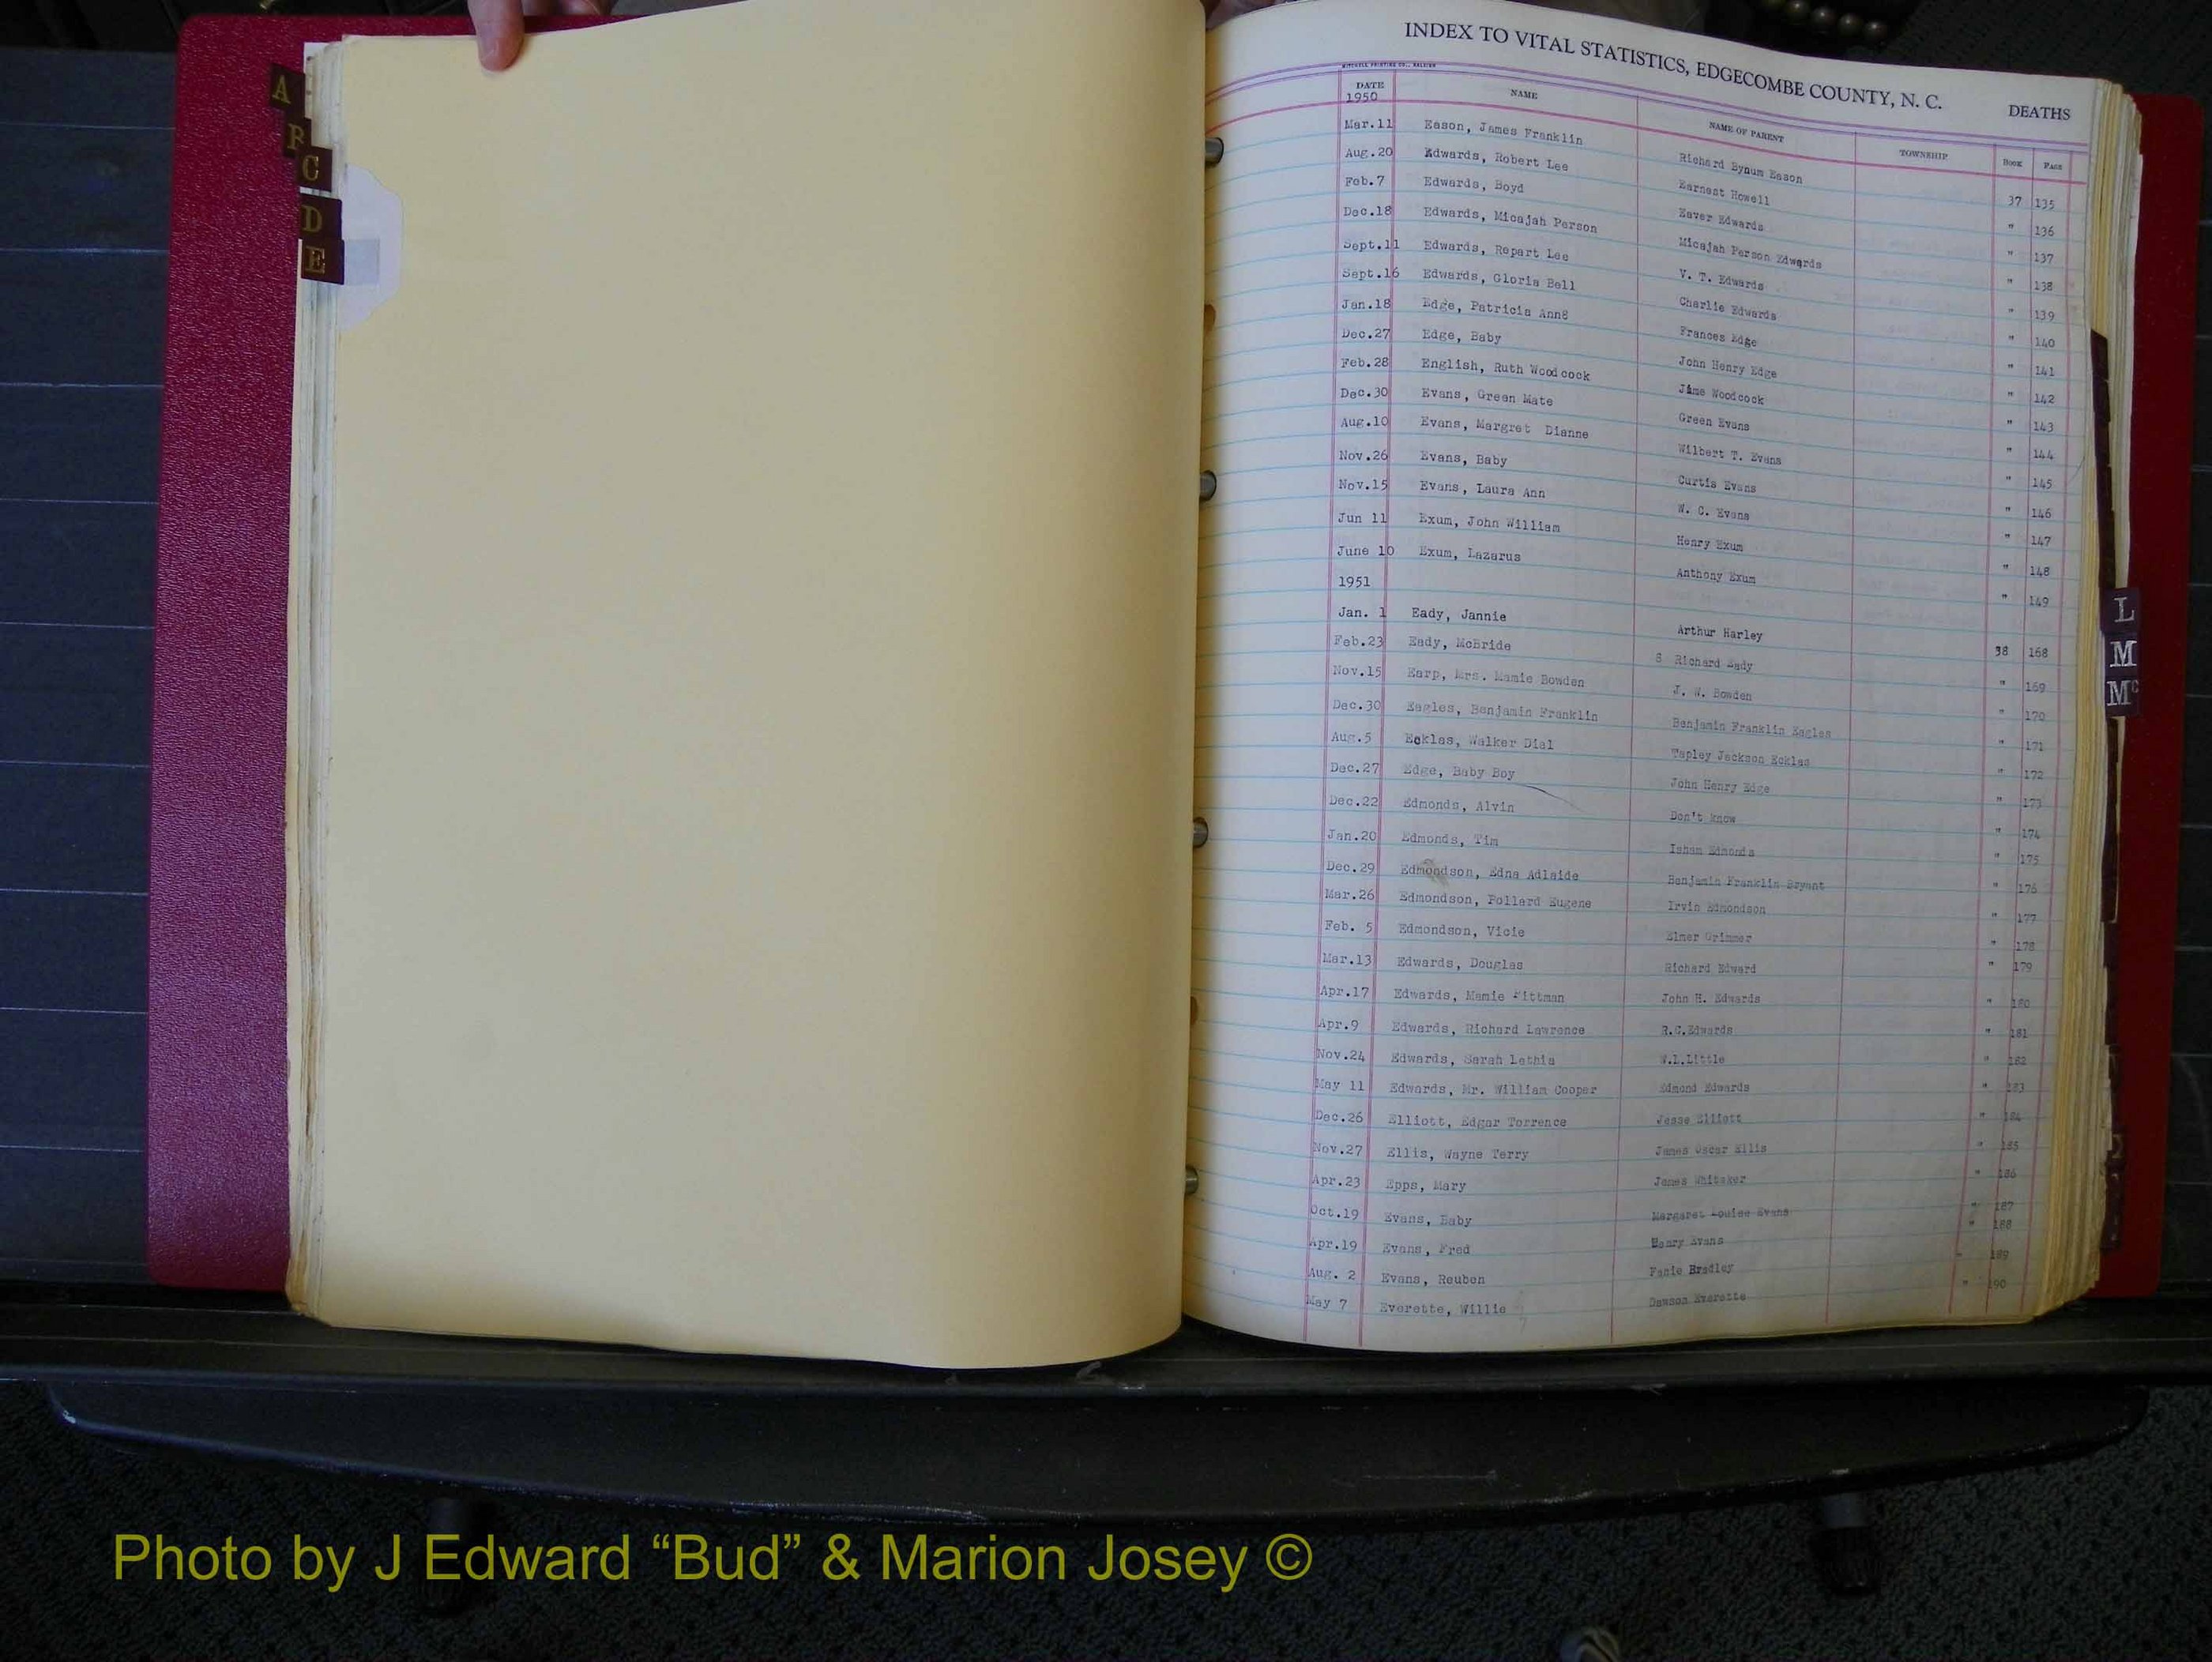 A
B
C
D
E
INDEX TO VITAL STATISTICS, EDGECOMBE COUNTY, N. C. DEATHS
MITCHELL PRINTING CO., RALEIGH
DATE NAME NAME OF PARENT TOWNSHIP BOOK PAGE
1950
Mar.11 Eason, James Franklin Richard Bynum Eason 37 135
Aug.20 Edwards, Robert Lee Earnest Howell " 136
Feb.7 Edwards, Boyd Zaver Edwards " 137
Dec.18 Edwards, Micajah Person Micajah Person Edwards " 138
Sept.11 Edwards, Repart Lee V. T. Edwards " 139
Sept.16 Edwards, Gloria Bell Charlie Edwards " 140
Jan.18 Edge, Patricia Anne Frances Edge " 141
Dec.27 Edge, Baby John Henry Edge " 142
Feb.28 English, Ruth Woodcock Jame Woodcock " 143
Dec.30 Evans, Green Mate Green Evans " 144
Aug.10 Evans, Margret Dianne Wilbert T. Evans " 145
Nov.26 Evans, Baby Curtis Evans " 146
Nov.15 Evans, Laura Ann W. C. Evans " 147
Jun 11 Exum, John William Henry Exum " 148
June 10 Exum, Lazarus Anthony Exum " 149
1951
Jan. 1 Eady, Jannie Arthur Harley 38 168
Feb.23 Eady, McBride Richard Eady " 169
Nov.15 Earp, Mrs. Mamie Bowden J. W. Bowden " 170
Dec.30 Eagles, Benjamin Franklin Benjamin Franklin Eagles " 171
Aug.5 Ecklas, Walker Dial Tapley Jackson Ecklas " 172
Dec.27 Edge, Baby Boy John Henry Edge " 173
Dec.22 Edmonds, Alvin Don't know " 174
Jan.20 Edmonds, Tim Isham Edmonds " 175
Dec.29 Edmondson, Edna Adlaide Benjamin Franklin Bryant " 176
Mar.26 Edmondson, Pollard Eugene Irvin Edmondson " 177
Feb. 5 Edmondson, Vicie Elmer Grimmer " 178
Mar.13 Edwards, Douglas Richard Edward " 179
Apr.17 Edwards, Mamie Pittman John H. Edwards " 180
Apr.9 Edwards, Richard Lawrence R.C.Edwards " 181
Nov.24 Edwards, Sarah Lethia W.L.Little " 182
May 11 Edwards, Mr. William Cooper Edmond Edwards " 183
Dec.26 Elliott, Edgar Torrence Jesse Elliott " 184
Nov.27 Ellis, Wayne Terry James Oscar Ellis " 185
Apr.23 Epps, Mary James Whitaker " 186
Oct.19 Evans, Baby Margaret Louise Evans " 187
Apr.19 Evans, Fred Henry Evans " 188
Aug. 2 Evans, Reuben Fanie Bradley " 189
May 7 Everette, Willie Dawson Everette " 190
L
M
Mc
Photo by J Edward “Bud” & Marion Josey ©